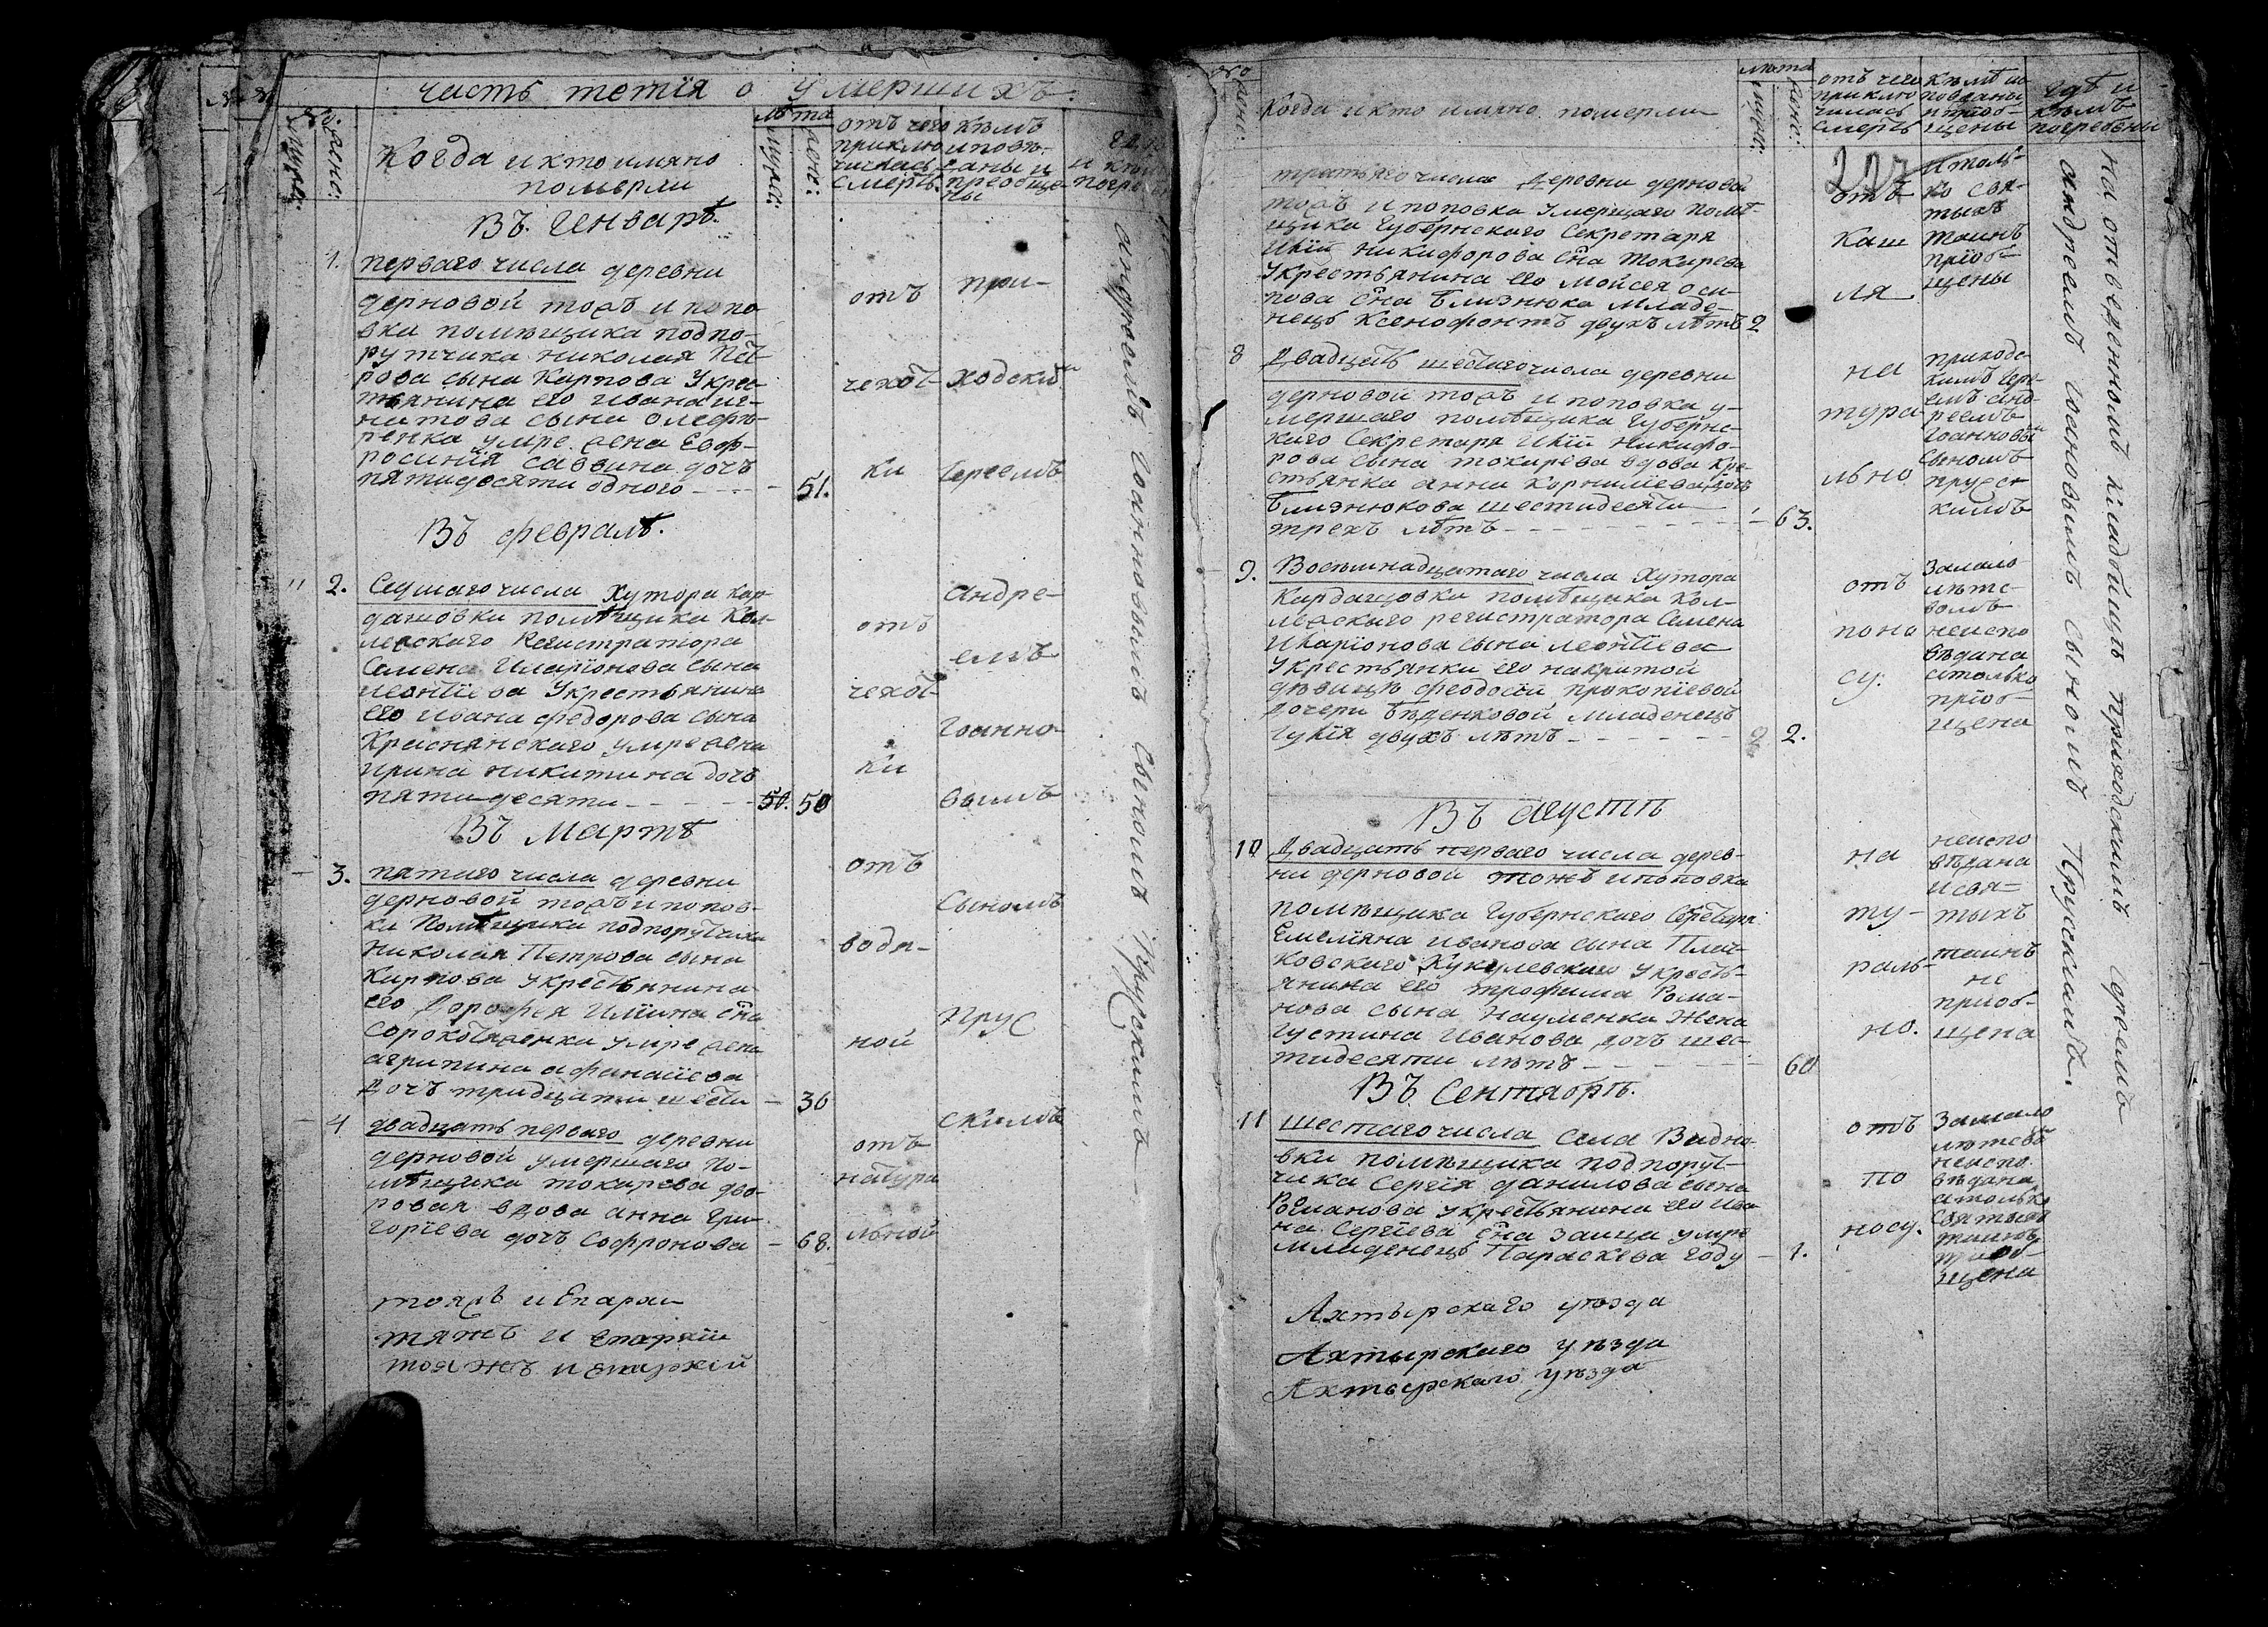 часть тетїя о умершихъ.
No.
муже:
жено:
Когда и кто имяно
померли
лѣта
муже:
жене:
отъ чего
приклю
чилась
смерть.
кѣмъ
исповѣ-
даны и
преобще-
ны
гдѣ
и кѣм
погре
Въ Генварѣ.
1. перваго числа деревни
дерновой тожъ и попо
вки помѣщика подпо-
рутчика николая Пет-
рова сына Карпова Укрес-
тьянина его ивана иг-
натова сына
умре жена Евф-
росинїя саввина дочъ
пятидесяти одного - - - 51.
отъ
чехот-
ки
Въ февралѣ.
2. Седмаго числа Хутора кар
дашовки помѣщика Кол-
лежскаго Регистратора
Семена Иларїонова сына
леонтїева Укрестьянина
его ивана федорова сына
Краснянскаго умре жена
ирина никитина дочъ
пятидесяти - - - - 50. 50
отъ
чехот-
ки
Въ Мартѣ
3. пятаго числа деревни
дерновой тожъ и попов-
ки Помѣщика подпорутчика
николая Петрова сына
Карпова Укрестьянина
его Дорофея Илїина сна
умре жена
агрипина афанасїева
Дочъ тридцати шести - 36
отъ
водя-
ной
4 двадцать перваго деревни
дерновой умершаго По-
мѣщика токарева дво-
ровая вдова анна Гри-
горїева дочъ Софронова - 68.
отъ
натура
льной
при-
ходскимъ
Іереемъ
андре-
емъ
Іоанно-
вымъ
Сыномъ
Прус
скимъ
андреемъ Іоанновымъ Сыномъ Прускимъ
тояжъ и Епархи
тяжъ и епархїи
тояжъ и епархїй
No
жено:
Когда и кто имяно померли
лѣта
муже:
жене:
отъ чего
приклю
чилась
смерть
кѣмъ ис
повѣданы
и прїоб-
щены
гдѣ и
кѣмъ
погребены
227
третьяго числа деревни дерновой
тожъ и поповка умершаго помѣ-
щика Губернскаго Секретаря
Илїи никифорова сна токарева
Укрестьянина его мойсея оси-
пова сна близнюка младе-
нецъ Ксенофонтъ двухъ лѣтъ 2
отъ
каш
ля
и толь-
ко свя-
тыхъ
таинъ
прїоб-
щены
8 Двадцать шестаго числа деревни
дерновой тожъ и поповка у-
мершаго помѣщика Губернс-
каго Секретаря Илїи никифо-
рова сына токарева вдова Кре-
стьянка анна Корнилїева дочъ
Близнюкова шестидесяти
трехъ лѣтъ - - - - - 63.
на
тура
льно
приходс-
кимъ Іере-
емъ анд-
реемъ
Іоанновы
Сыномъ
прусс
кимъ
9. Восемнадцатаго числа Хутора
Кардашовки помѣщика Кол-
лежскаго регистратора Семена
Иларїонова сына леонтїева
Укрестьянки его накритой
дѣвицы феодосїи прокопїевой
дочери бѣденковой младенецъ
Іулїя двухъ лѣтъ - - - - - 2.
отъ
поно
су.
Замало
лѣтс-
вомъ
неиспо
вѣдана
атолько
прїоб-
щена
Въ августѣ
10 Двадцать перваго числа дерев-
ни дерновой тожъ и поповка
помѣщика Губернскаго Секретаря
Емелїяна иванова сына Плач-
ковскаго Кукулевскаго Укресть-
янина его трофима Рома-
нова сына науменка Жена
густина Иванова дочъ шес-
тидесяти лѣтъ - - - - - 60
на
ту-
раль-
но.
неиспо
вѣдана
и свя-
тыхъ
таинъ
не
приоб-
щена
Въ Сентябрѣ.
11 шестаго числа Села Видно-
вки помѣщика подпорут-
чика Сергїя данилова сына
Романова укрестьянина его ива
на Сергїева сна Заица умре
младенецъ Параскева году - 1.
отъ
по
носу.
Замало
лѣтсво
неиспо.
вѣдана
атолько
Святыхъ
таинъ
прїоб-
щена
на отведенномъ кладбищѣ приходскимъ Іереемъ
андреемъ Іоанновымъ Сыномъ Прускимъ.
Ахтырскаго уѣзда
Ахтырскаго уѣзда
Ахтырскаго уѣзда